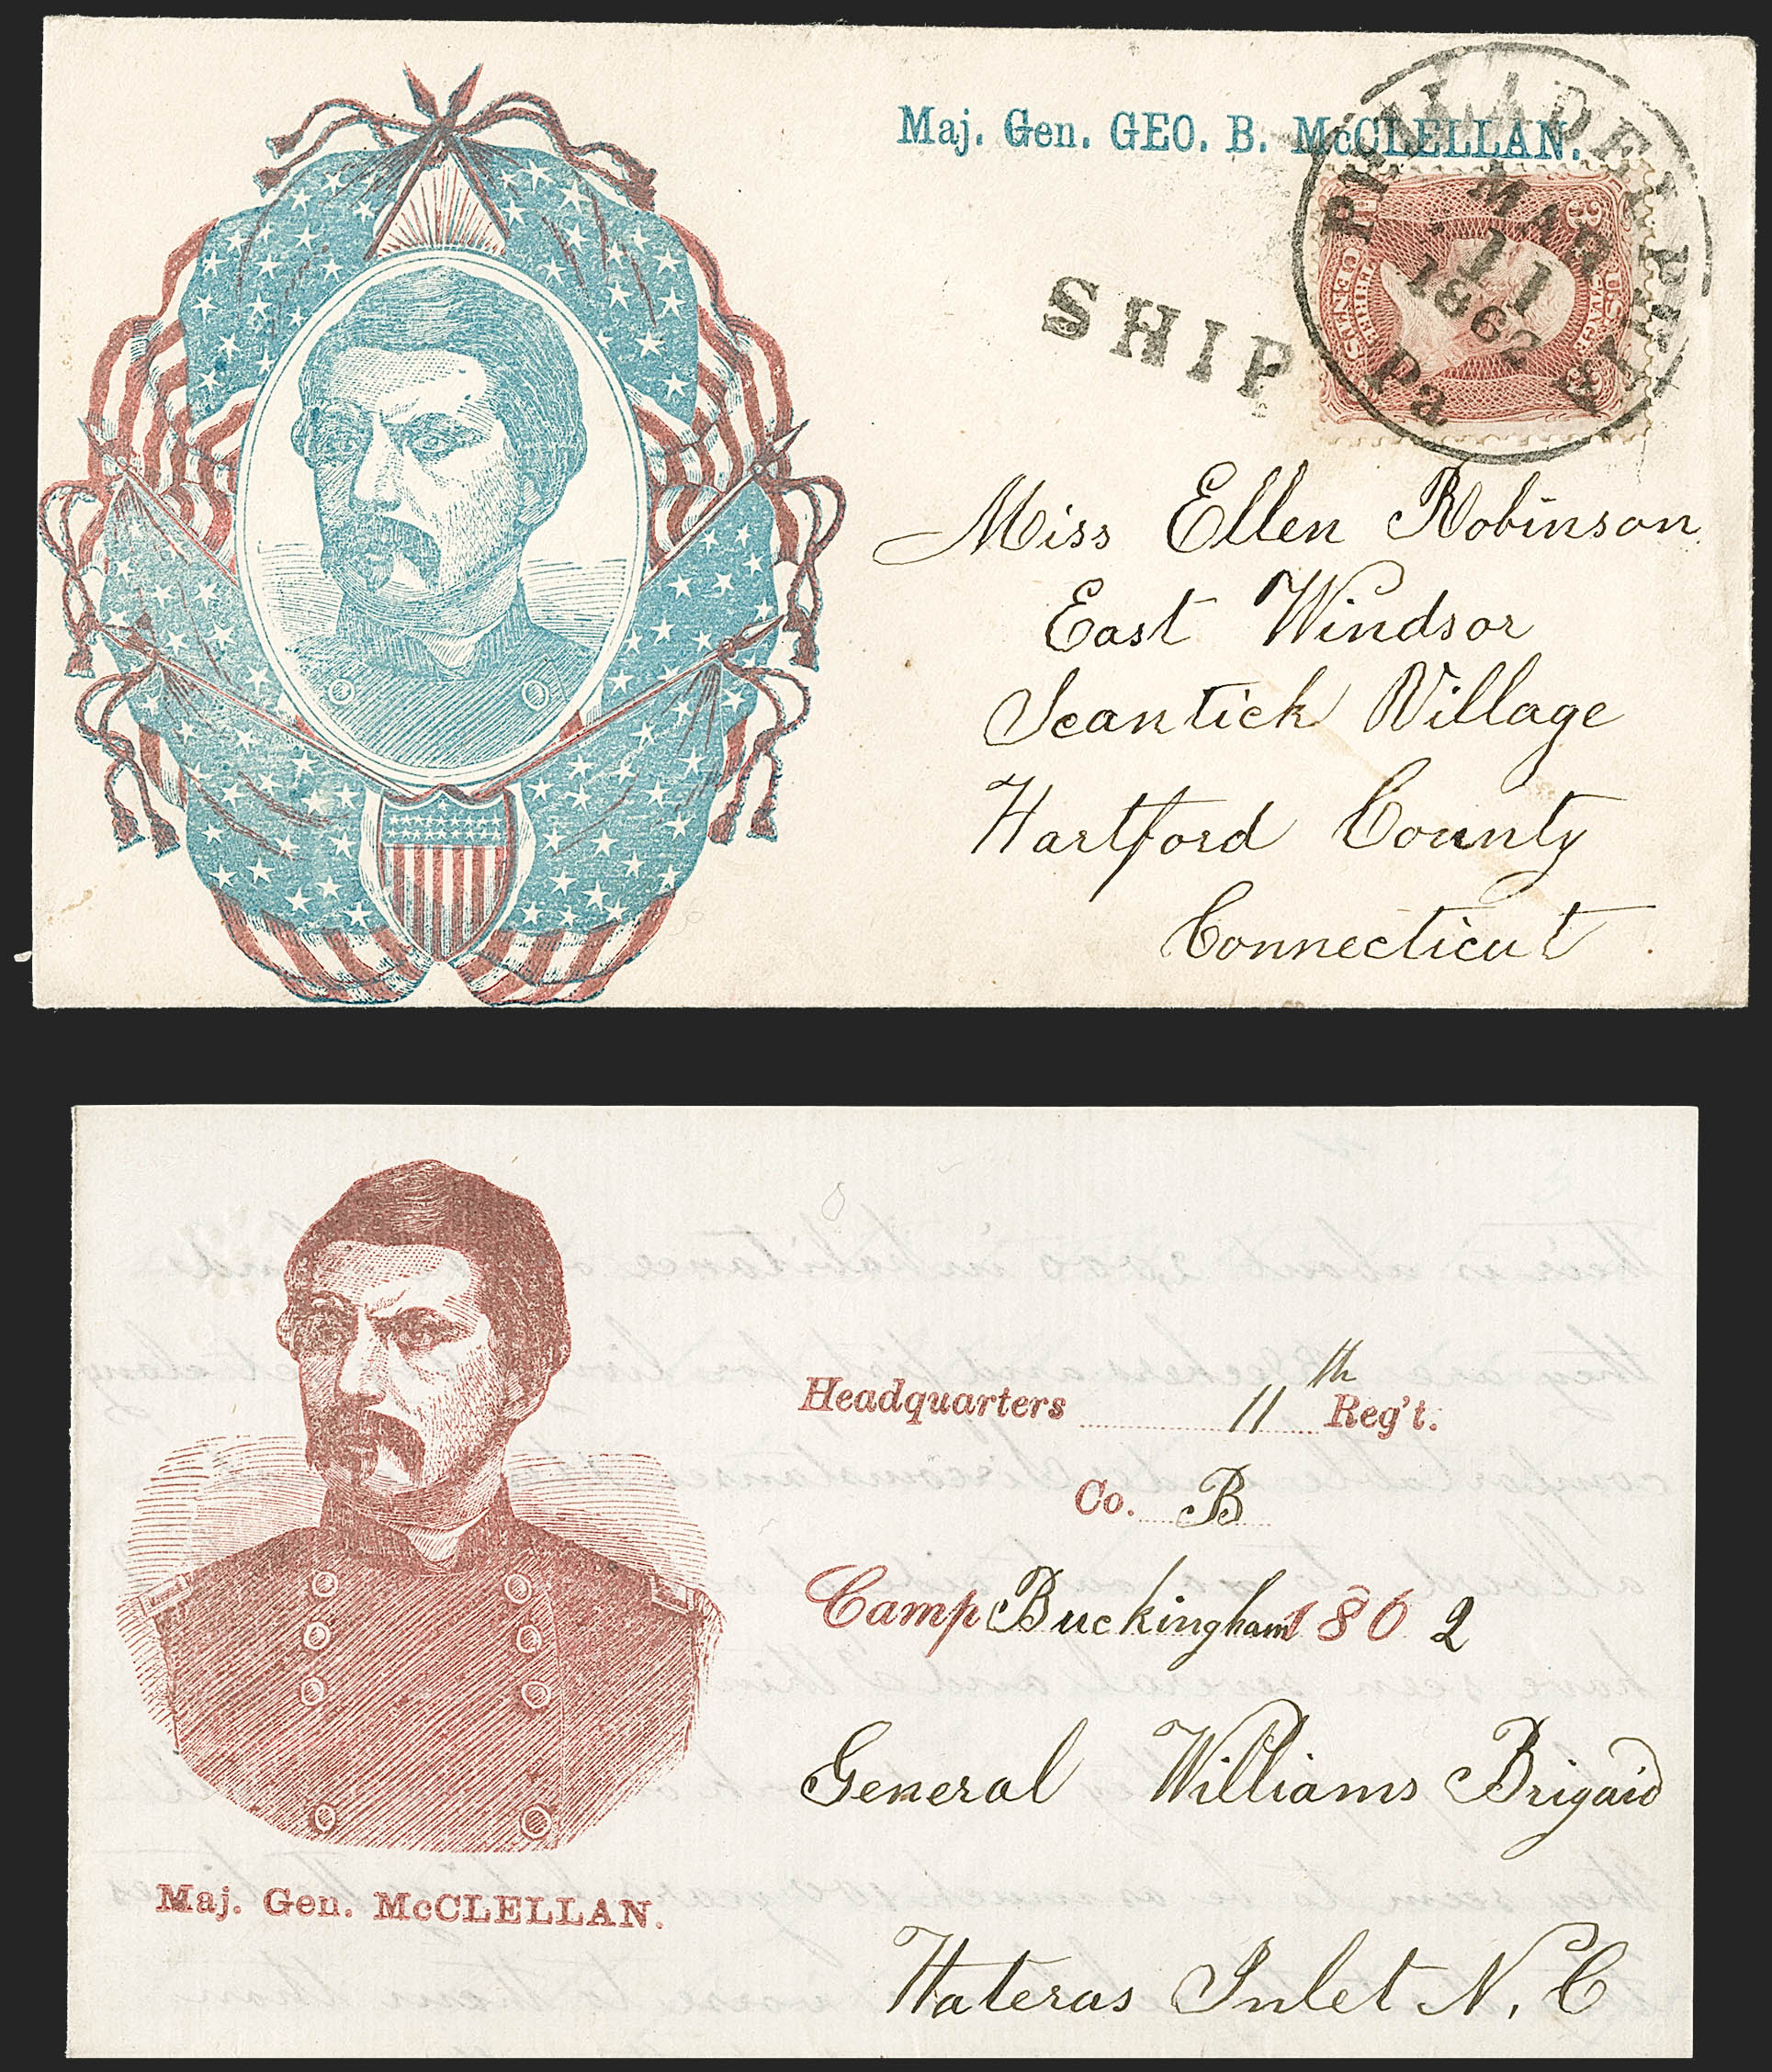 Maj. Gen. GEO. B. McCLELLAN.
PHILADELPHIA
MAR
11
1862
Pa
U.S. POSTAGE
THREE CENTS
3
3
SHIP
Miss Ellen Robinson
East Windsor
Scantick Village
Hartford County
Connecticut
Headquarters 11th Reg't.
Co. B
Camp Buckingham 1862
General Williams Brigaid
Maj. Gen. McCLELLAN.
Hateras Inlet N. C